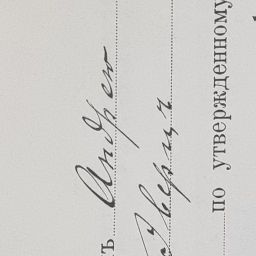 ъ Андрею
Зверич
по утвержденному